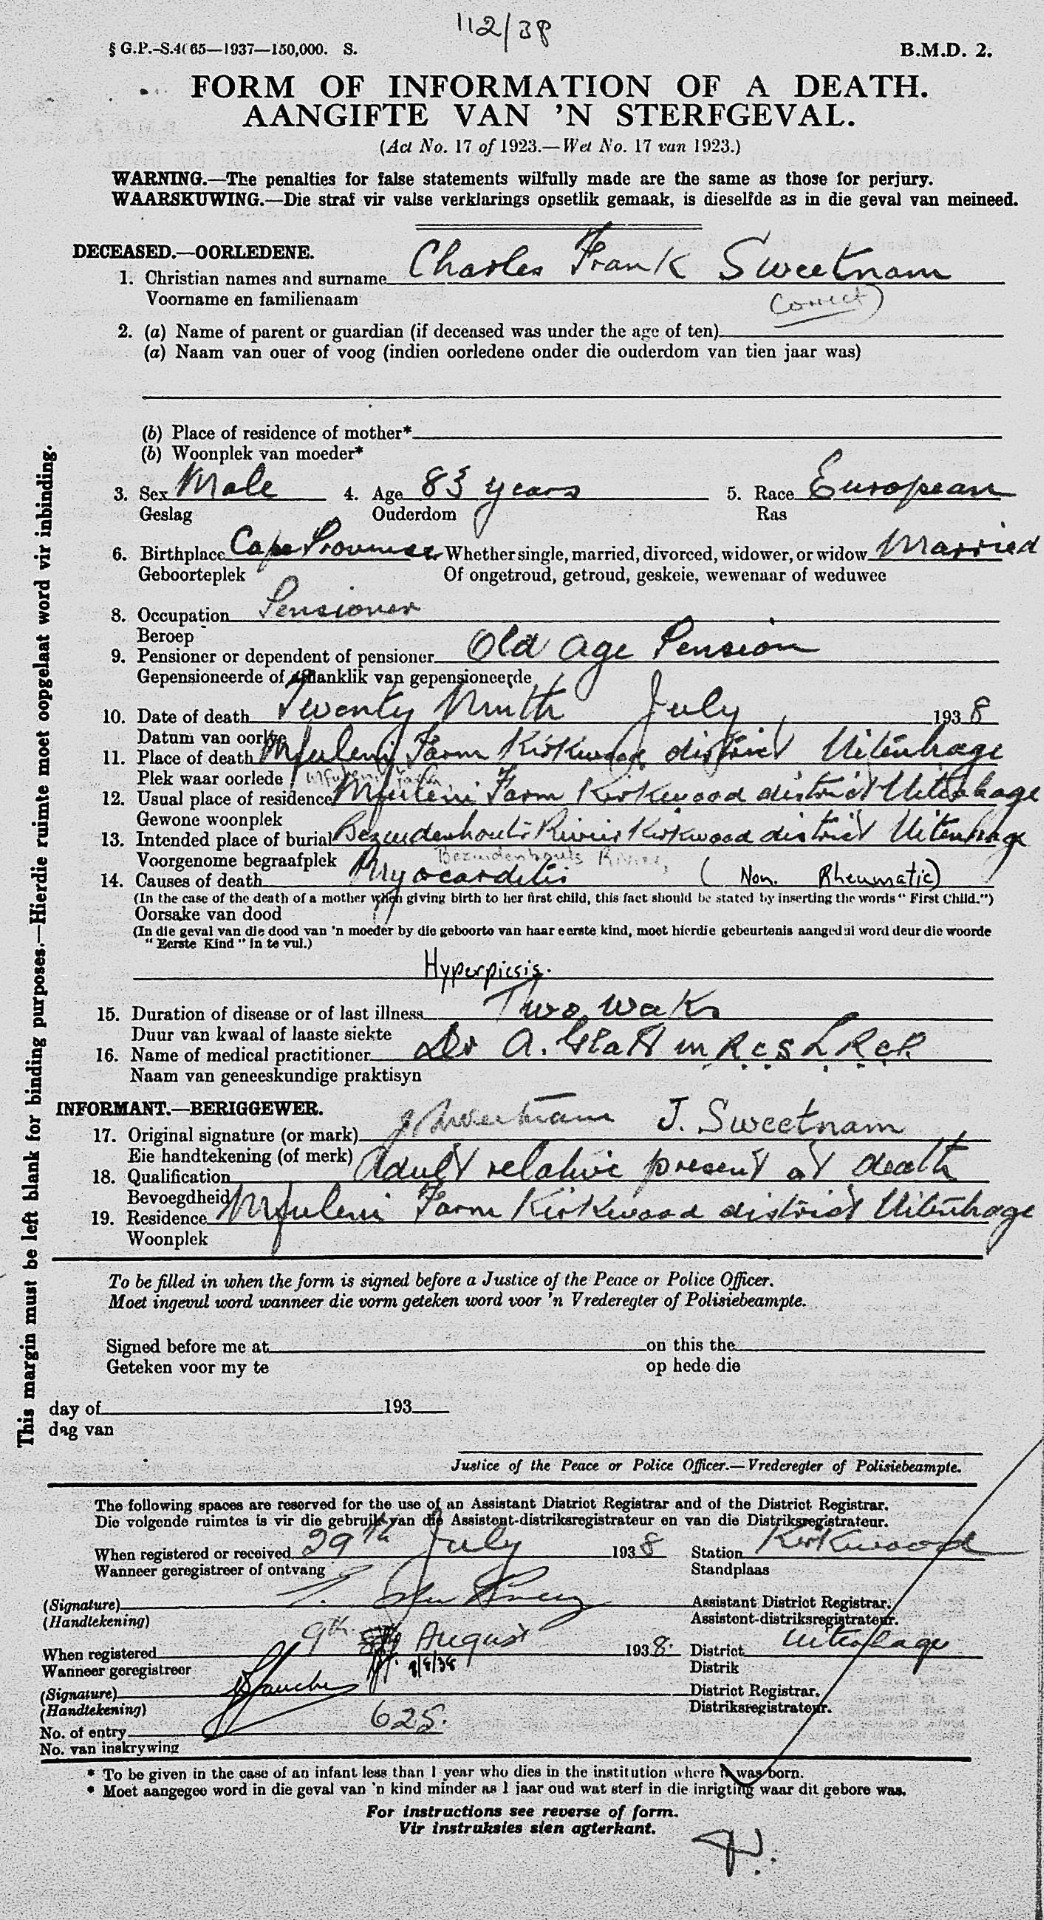 112/38
§ G.P.-S.4065—1937—150,000. S. B.M.D. 2.
FORM OF INFORMATION OF A DEATH.
AANGIFTE VAN 'N STERFGEVAL.
(Act No. 17 of 1923.—Wet No. 17 van 1923.)
WARNING.—The penalties for false statements wilfully made are the same as those for perjury.
WAARSKUWING.—Die straf vir valse verklarings opsetlik gemaak, is dieselfde as in die geval van meineed.
DECEASED.—OORLEDENE.
1. Christian names and surname Charles Frank Sweetnam
Voorname en familienaam (Correct)
2. (a) Name of parent or guardian (if deceased was under the age of ten)
(a) Naam van ouer of voog (indien oorledene onder die ouderdom van tien jaar was)
(b) Place of residence of mother*
(b) Woonplek van moeder*
3. Sex Male 4. Age 83 years 5. Race European
Geslag Ouderdom Ras
6. Birthplace Cape Province Whether single, married, divorced, widower, or widow Married
Geboorteplek Of ongetroud, getroud, geskeie, wewenaar of weduwee
8. Occupation Pensioner
Beroep
9. Pensioner or dependent of pensioner Old Age Pension
Gepensioneerde of afhanklik van gepensioneerde
10. Date of death Twenty Ninth July 1938
Datum van oorlye
11. Place of death Mfuleni Farm Kirkwood district Uitenhage
Plek waar oorlede Mfuleni Farm
12. Usual place of residence Mfuleni Farm Kirkwood district Uitenhage
Gewone woonplek
13. Intended place of burial Bezuidenhouts Rivier Kirkwood district Uitenhage
Voorgenome begraafplek Bezuidenhouts Rivier
14. Causes of death Myocarditis (Non. Rheumatic)
(In the case of the death of a mother when giving birth to her first child, this fact should be stated by inserting the words "First Child.")
Oorsake van dood
(In die geval van die dood van 'n moeder by die geboorte van haar eerste kind, moet hierdie gebeurtenis aangedui word deur die woorde
"Eerste Kind" in te vul.)
Hyperpiesis.
15. Duration of disease or of last illness Two weeks
Duur van kwaal of laaste siekte
16. Name of medical practitioner Dr A. Glatt M.R.C.S. L.R.C.P.
Naam van geneeskundige praktisyn
INFORMANT.—BERIGGEWER.
17. Original signature (or mark) J Sweetnam J. Sweetnam
Eie handtekening (of merk)
18. Qualification Adult relative present at death
Bevoegdheid
19. Residence Mfuleni Farm Kirkwood district Uitenhage
Woonplek
To be filled in when the form is signed before a Justice of the Peace or Police Officer.
Moet ingevul word wanneer die vorm geteken word voor 'n Vrederegter of Polisiebeampte.
Signed before me at on this the
Geteken voor my te op hede die
day of 193
dag van
Justice of the Peace or Police Officer.—Vrederegter of Polisiebeampte.
This margin must be left blank for binding purposes.—Hierdie ruimte moet oopgelaat word vir inbinding.
The following spaces are reserved for the use of an Assistant District Registrar and of the District Registrar.
Die volgende ruimtes is vir die gebruik van die Assistent-distriksregistrateur en van die Distriksregistrateur.
When registered or received 29th July 1938 Station Kirkwood
Wanneer geregistreer of ontvang Standplaas
(Signature) Assistant District Registrar.
(Handtekening) Assistent-distriksregistrateur.
When registered 9th August 1938. District Uitenhage
Wanneer geregistreer 9/8/38 Distrik
(Signature) District Registrar.
(Handtekening) Distriksregistrateur.
No. of entry 625.
No. van inskrywing
* To be given in the case of an infant less than 1 year who dies in the institution where it was born.
* Moet aangegee word in die geval van 'n kind minder as 1 jaar oud wat sterf in die inrigting waar dit gebore was.
For instructions see reverse of form.
Vir instruksies sien agterkant.